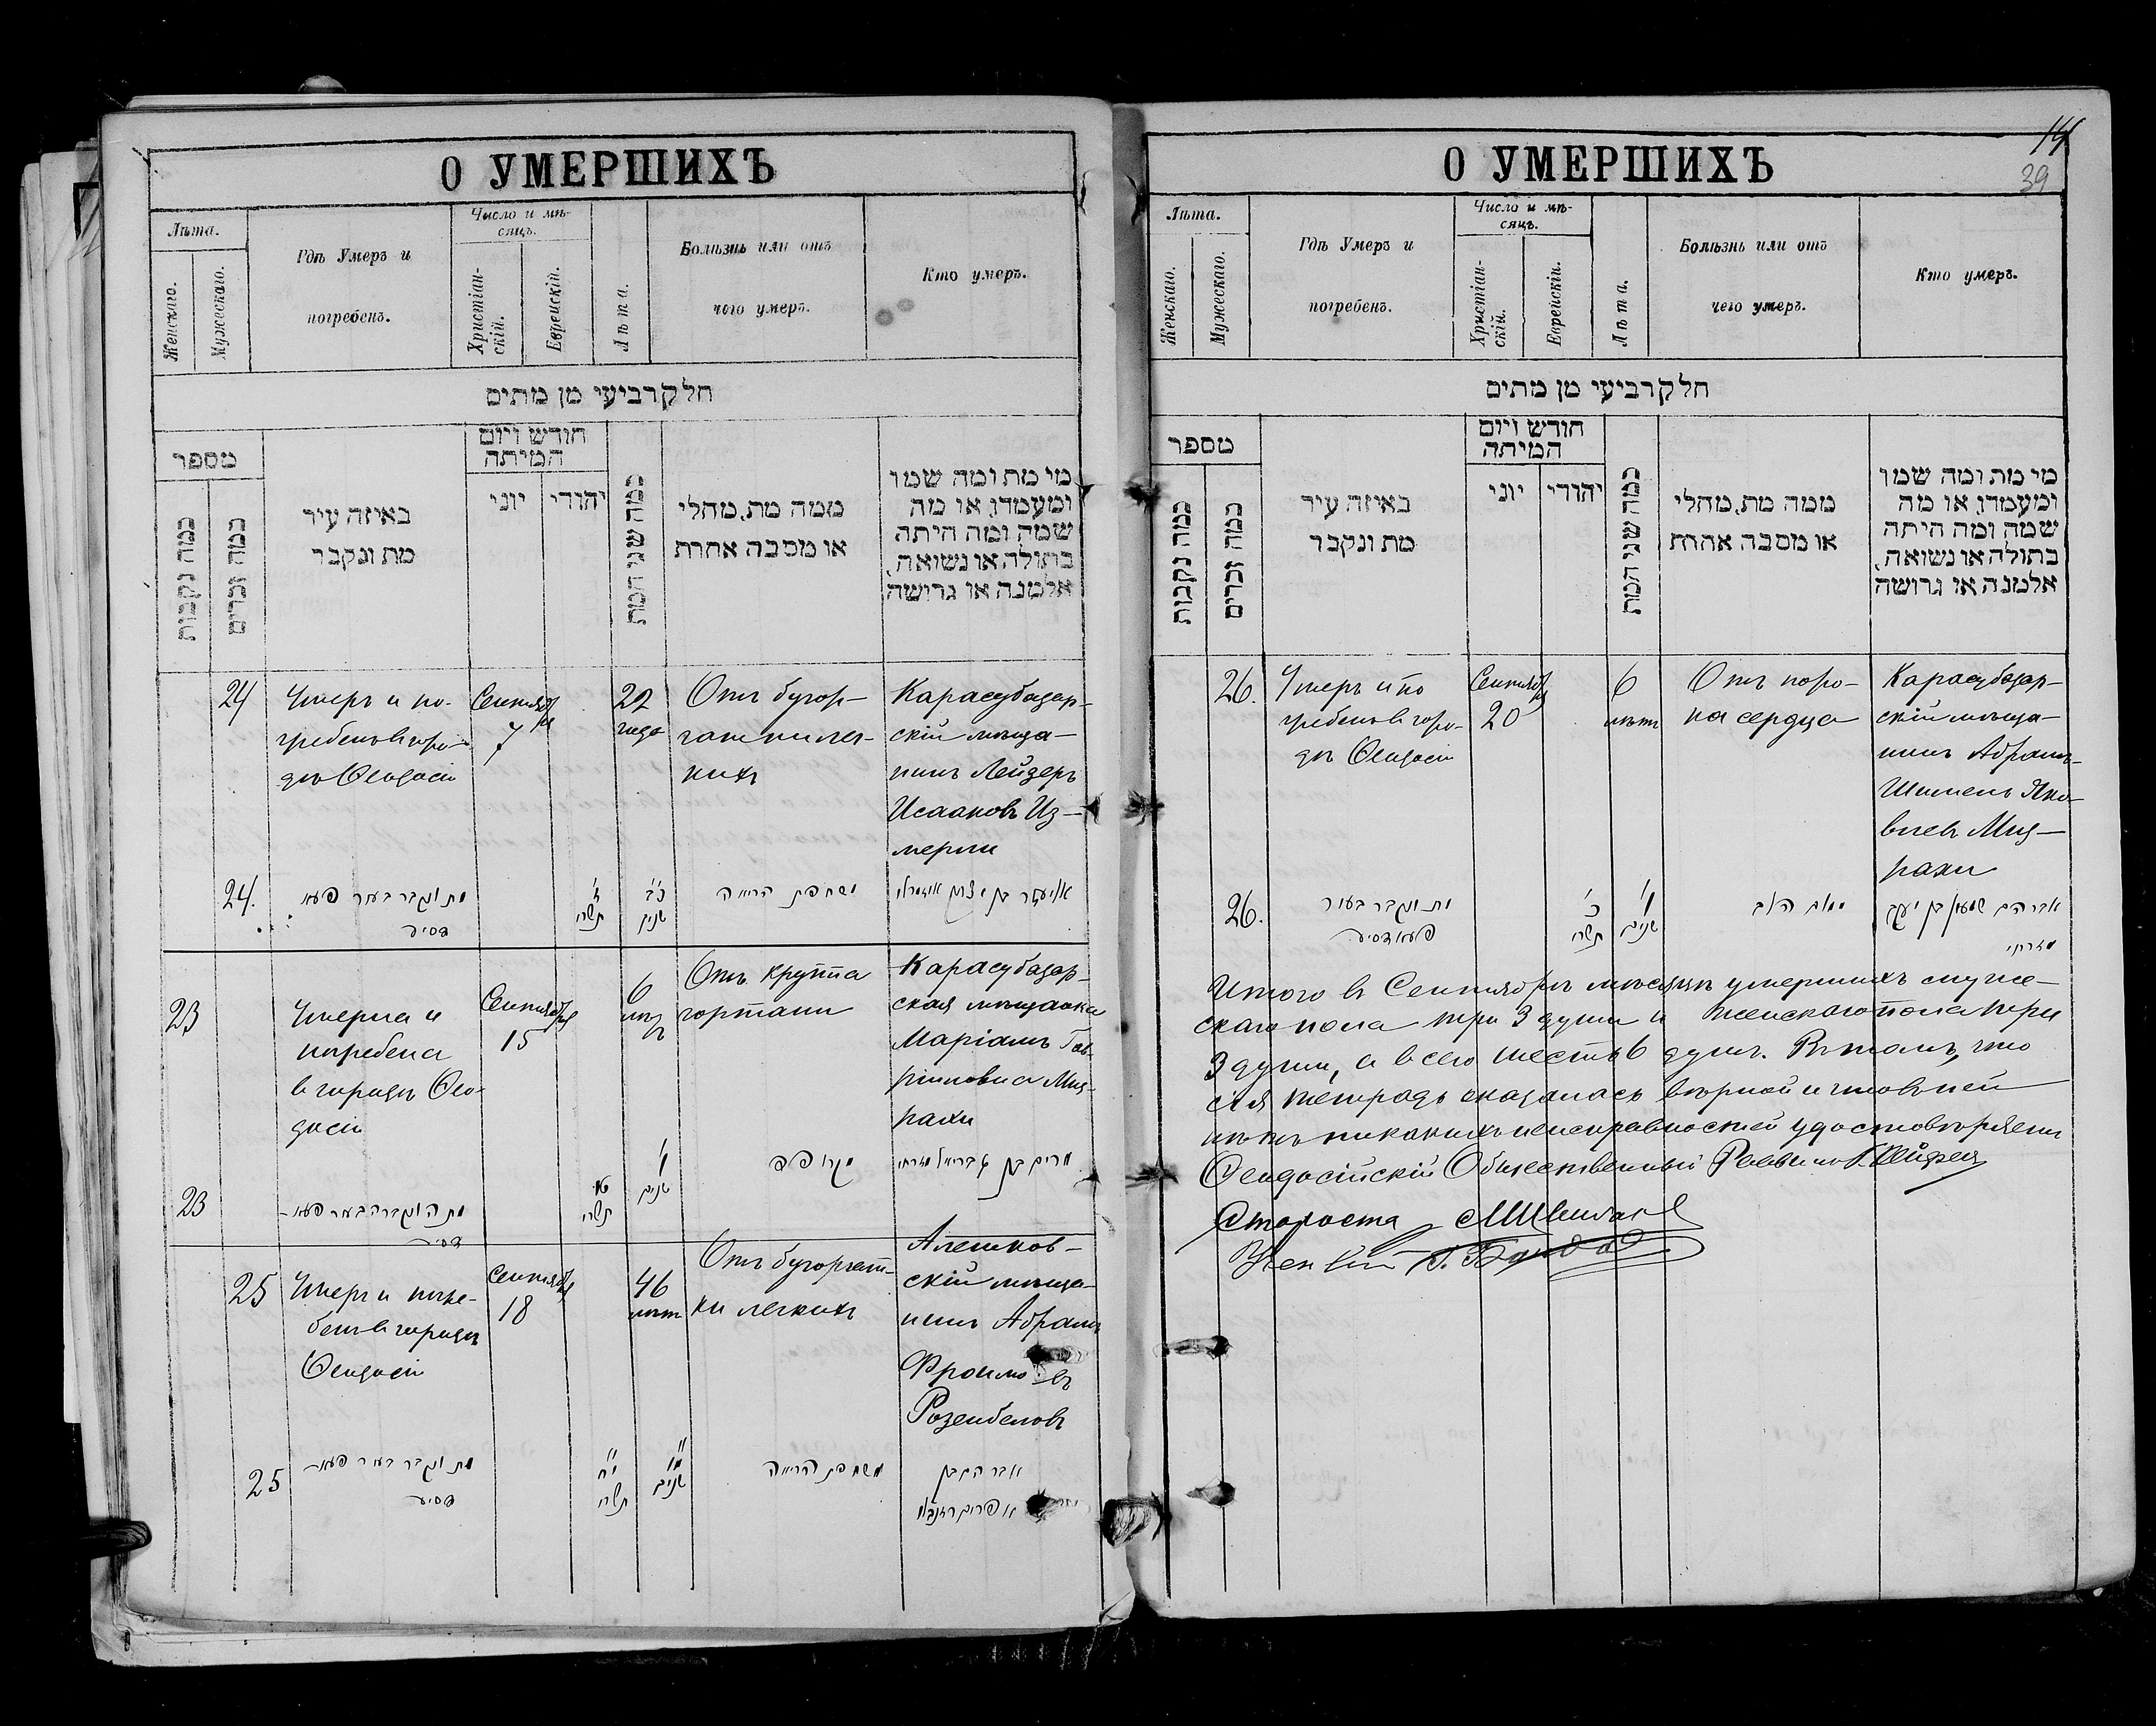 О УМЕРШИХЪ
Лѣта.
Женскаго.
Мужескаго.
Гдѣ Умеръ и
погребенъ.
Число и мѣ-
сяцъ.
Христіан-
скій.
Еврейскій.
Лѣта.
Болѣзнь или отъ
чего умеръ.
Кто умеръ.
חלק רביעי מן מתים
מספר
כמה נקבות
כמה זכרים
באיזה עיר
מת ונקבר
חודש ויום
המיתה
יוני
יהודי
כמה שני המת
ממה מת, מחלי
או מסבה אחרת
מי מת ומה שמו
ומעמדו, או מה
שמה ומה היתה
בתולה או נשואה,
אלמנה או גרושה
24
Умеръ и по-
гребенъ в горо-
дѣ Ѳеодосіи
Сентября
7
22
года
Отъ бугор-
чатки лег-
кихъ
Карасубазар-
скій мѣща-
нинъ Лейзеръ
Исааковъ Из-
мерли
24.
מת ונקבר בעיר פעאָ
דסיע
ז'
תשרי
כ"ב
שנים
משחפת הריאה
אליעזר בן יצחק
23
Умерла и
погребена
в городѣ Ѳео-
досіи
Сентября
15
6
лѣтъ
Отъ круппа
гортани
Карасубазар-
ская мѣщанка
Маріамъ Гав-
риловна Миз-
рахи
23
מתה ונקברה בעיר פעאָ-
דסיע
ט"ו
תשרי
ו'
שנים
מקרופ
מרים בת גבריאל מזרחי
25
Умеръ и погре-
бенъ в городѣ
Ѳеодосіи
Сентября
18
46
лѣтъ
Отъ бугорчат-
ки легкихъ
Алешков-
скій мѣща-
нинъ Абрамъ
Фроимовъ
Розенбеловъ
25
מת ונקבר בעיר פעאָ-
דסיע
י"ח
תשרי
מ"ו
שנים
משחפת הריאה
אברהם בן
אפרים
14
39
О УМЕРШИХЪ
Лѣта.
Женскаго.
Мужескаго.
Гдѣ Умеръ и
погребенъ.
Число и мѣ-
сяцъ.
Христіан-
скій.
Еврейскій.
Лѣта.
Болѣзнь или отъ
чего умеръ.
Кто умеръ.
חלק רביעי מן מתים
מספר
כמה נקבות
כמה זכרים
באיזה עיר
מת ונקבר
חודש ויום
המיתה
יוני
יהודי
כמה שני המת
ממה מת, מחלי
או מסבה אחרת
מי מת ומה שמו
ומעמדו, או מה
שמה ומה היתה
בתולה או נשואה,
אלמנה או גרושה
26.
Умеръ и по
гребенъ в горо-
дѣ Ѳеодосіи
Сентября
20
6
лѣтъ
Отъ поро-
ка сердца
Карасубазар-
скій мѣща-
нинъ Абрамъ-
Шимель Яко-
влевъ Миз-
рахи
26.
מת ונקבר בעיר
פעאָדסיע
כ'
תשרי
ו'
שנים
הלב
אברהם שמעון בן יעקב
מזרחי
Итого в Сентябрѣ мѣсяцѣ умершихъ муже-
скаго пола три 3 души и женскаго пола три
3 души, а всего шесть 6 душъ. Въ томъ, что
сія тетрадь оказалась вѣрной и что въ ней
нѣтъ никакихъ неисправностей удостовѣряемъ
Ѳеодосійскій Общественный Раввинъ
Староста